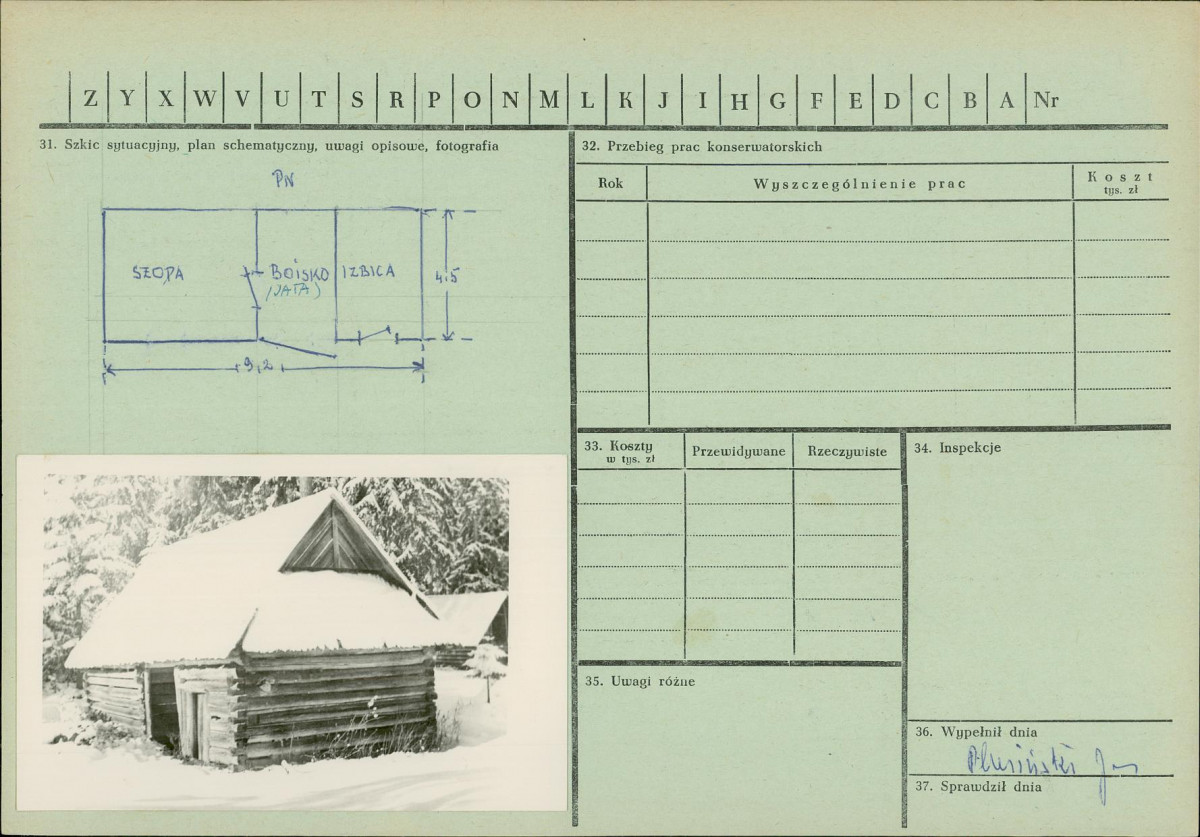 Z Y X W V U T S R P O N M L K J I H G F E D C B A Nr
31. Szkic sytuacyjny, plan schematyczny, uwagi opisowe, fotografia
PN
SZOPA
BOISKO
IZBICA
4,5
(JATA)
9,2
32. Przebieg prac konserwatorskich
Rok
Wyszczególnienie prac
Koszt
tys. zł
33. Koszty
w tys. zł
Przewidywane
Rzeczywiste
34. Inspekcje
35. Uwagi różne
36. Wypełnił dnia
37. Sprawdził dnia